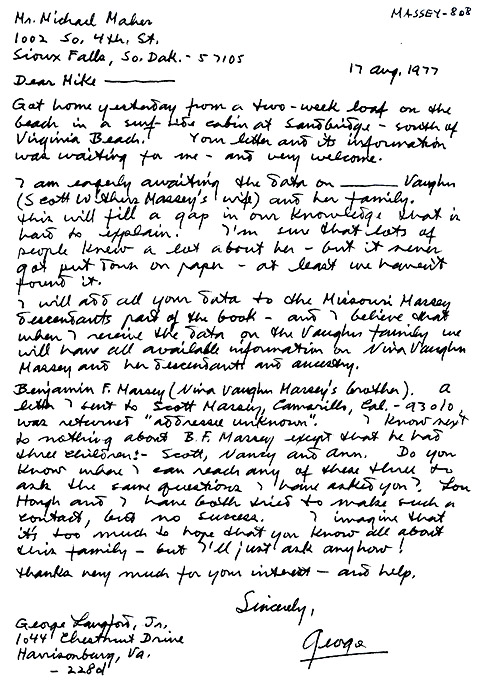 MASSEY-80B
Mr. Michael Maher
1002 So. 4th. St.
Sioux Falls, So. Dak. - 57105
17 Aug, 1977
Dear Mike
Got home yesterday from a two-week loaf on the
beach in a surf side cabin at Sandbridge - south of
Virginia Beach. Your letter and its information
was waiting for me - and very welcome.
I am eagerly awaiting the data on ____ Vaughn
(Scott Withers Massey's wife) and her family.
This will fill a gap in our knowledge that is
hard to explain. I'm sure that lots of
people knew a lot about her - but it never
got put down on paper - at least we haven't
found it.
I will add all your data to the Missouri Massey
descendants part of the book - and I believe that
when I receive the data on the Vaughn family we
will have all available information on Nina Vaughn
Massey and her descendants and ancestry.
Benjamin F. Massey (Nina Vaughn Massey's brother). A
letter I sent to Scott Massey, Camarillo, Cal. - 93010,
was returned "addresse unknown". I know next
to nothing about B.F. Massey except that he had
three children:- Scott, Nancy and Ann. Do you
know where I can reach any of these three to
ask the same questions I have asked you? Lou
Hough and I have both tried to make such a
contact, but no success. I imagine that
it's too much to hope that you know all about
this family - but I'll just ask anyhow!
Thanks very much for your interest - and help.
Sincerely,
George
George Langford, Jr.
1044 Chestnut Drive
Harrisonburg, Va.
- 22801